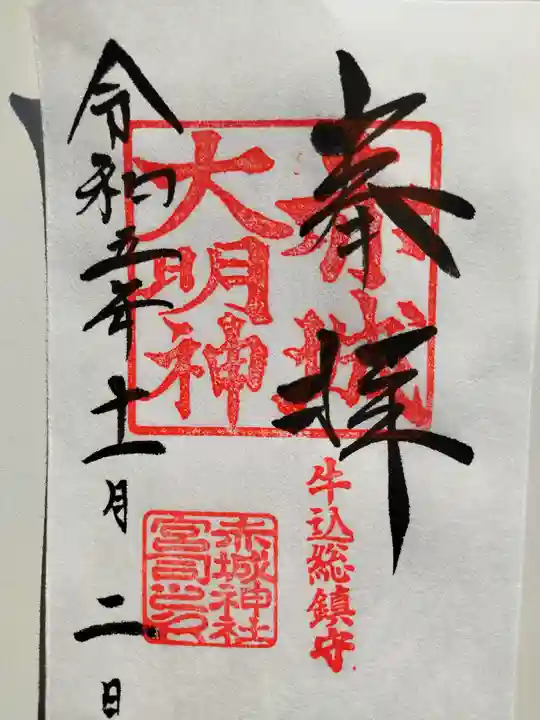 奉拝
赤城
大明神
牛込総鎮守
赤城神社
宮司之印
令和五年十一月二日